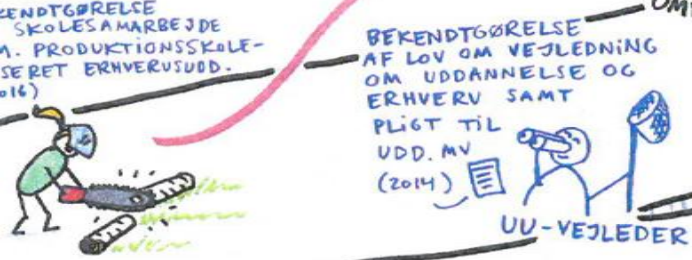 KENDTGØRELSE
SKOLESAMARBEJDE
M. PRODUKTIONSSKOLE-
SERET ERHVERVSUDD.
016)
BEKENDTGØRELSE
AF LOV OM VEJLEDNING
OM UDDANNELSE OG
ERHVERV SAMT
PLIGT TIL
UDD. MV
(2014)
UU-VEJLEDER